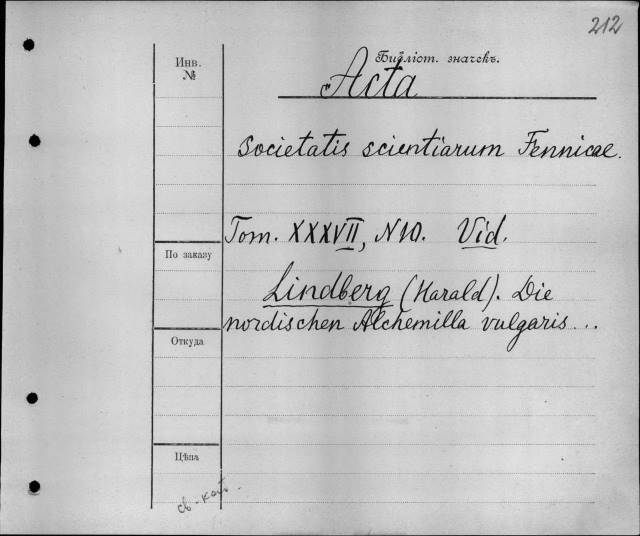 212
Инв.
№
Библіот. значекъ.
"Acta
Societatis scientiarum Fennicae.
Tom. XXXVII, N 10. Vid.
По заказу
Lindberg (Harald). Die
nordischen Alchemilla vulgaris...
Откуда
Цѣна